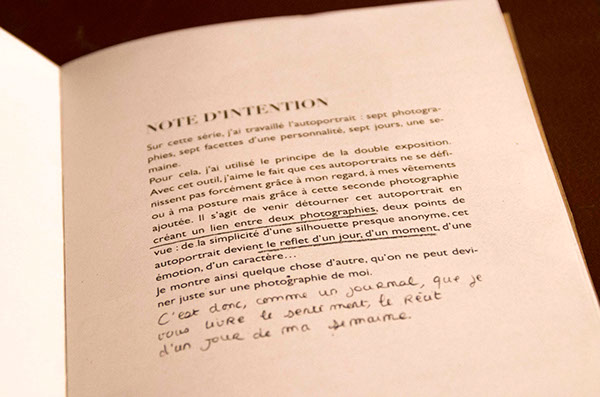 NOTE D'INTENTION
Sur cette série, j'ai travaillé l'autoportrait : sept photogra-
phies, sept facettes d'une personnalité, sept jours, une se-
maine.
Pour cela, j'ai utilisé le principe de la double exposition.
Avec cet outil, j'aime le fait que ces autoportraits ne se défi-
nissent pas forcément grâce à mon regard, à mes vêtements
ou à ma posture mais grâce à cette seconde photographie
ajoutée. Il s'agit de venir détourner cet autoportrait en
créant un lien entre deux photographies, deux points de
vue : de la simplicité d'une silhouette presque anonyme, cet
autoportrait devient le reflet d'un jour, d'un moment, d'une
émotion, d'un caractère...
Je montre ainsi quelque chose d'autre, qu'on ne peut devi-
ner juste sur une photographie de moi.
C'est donc, comme un journal, que je
vous livre le sentiment, le récit
d'un jour de ma semaine.